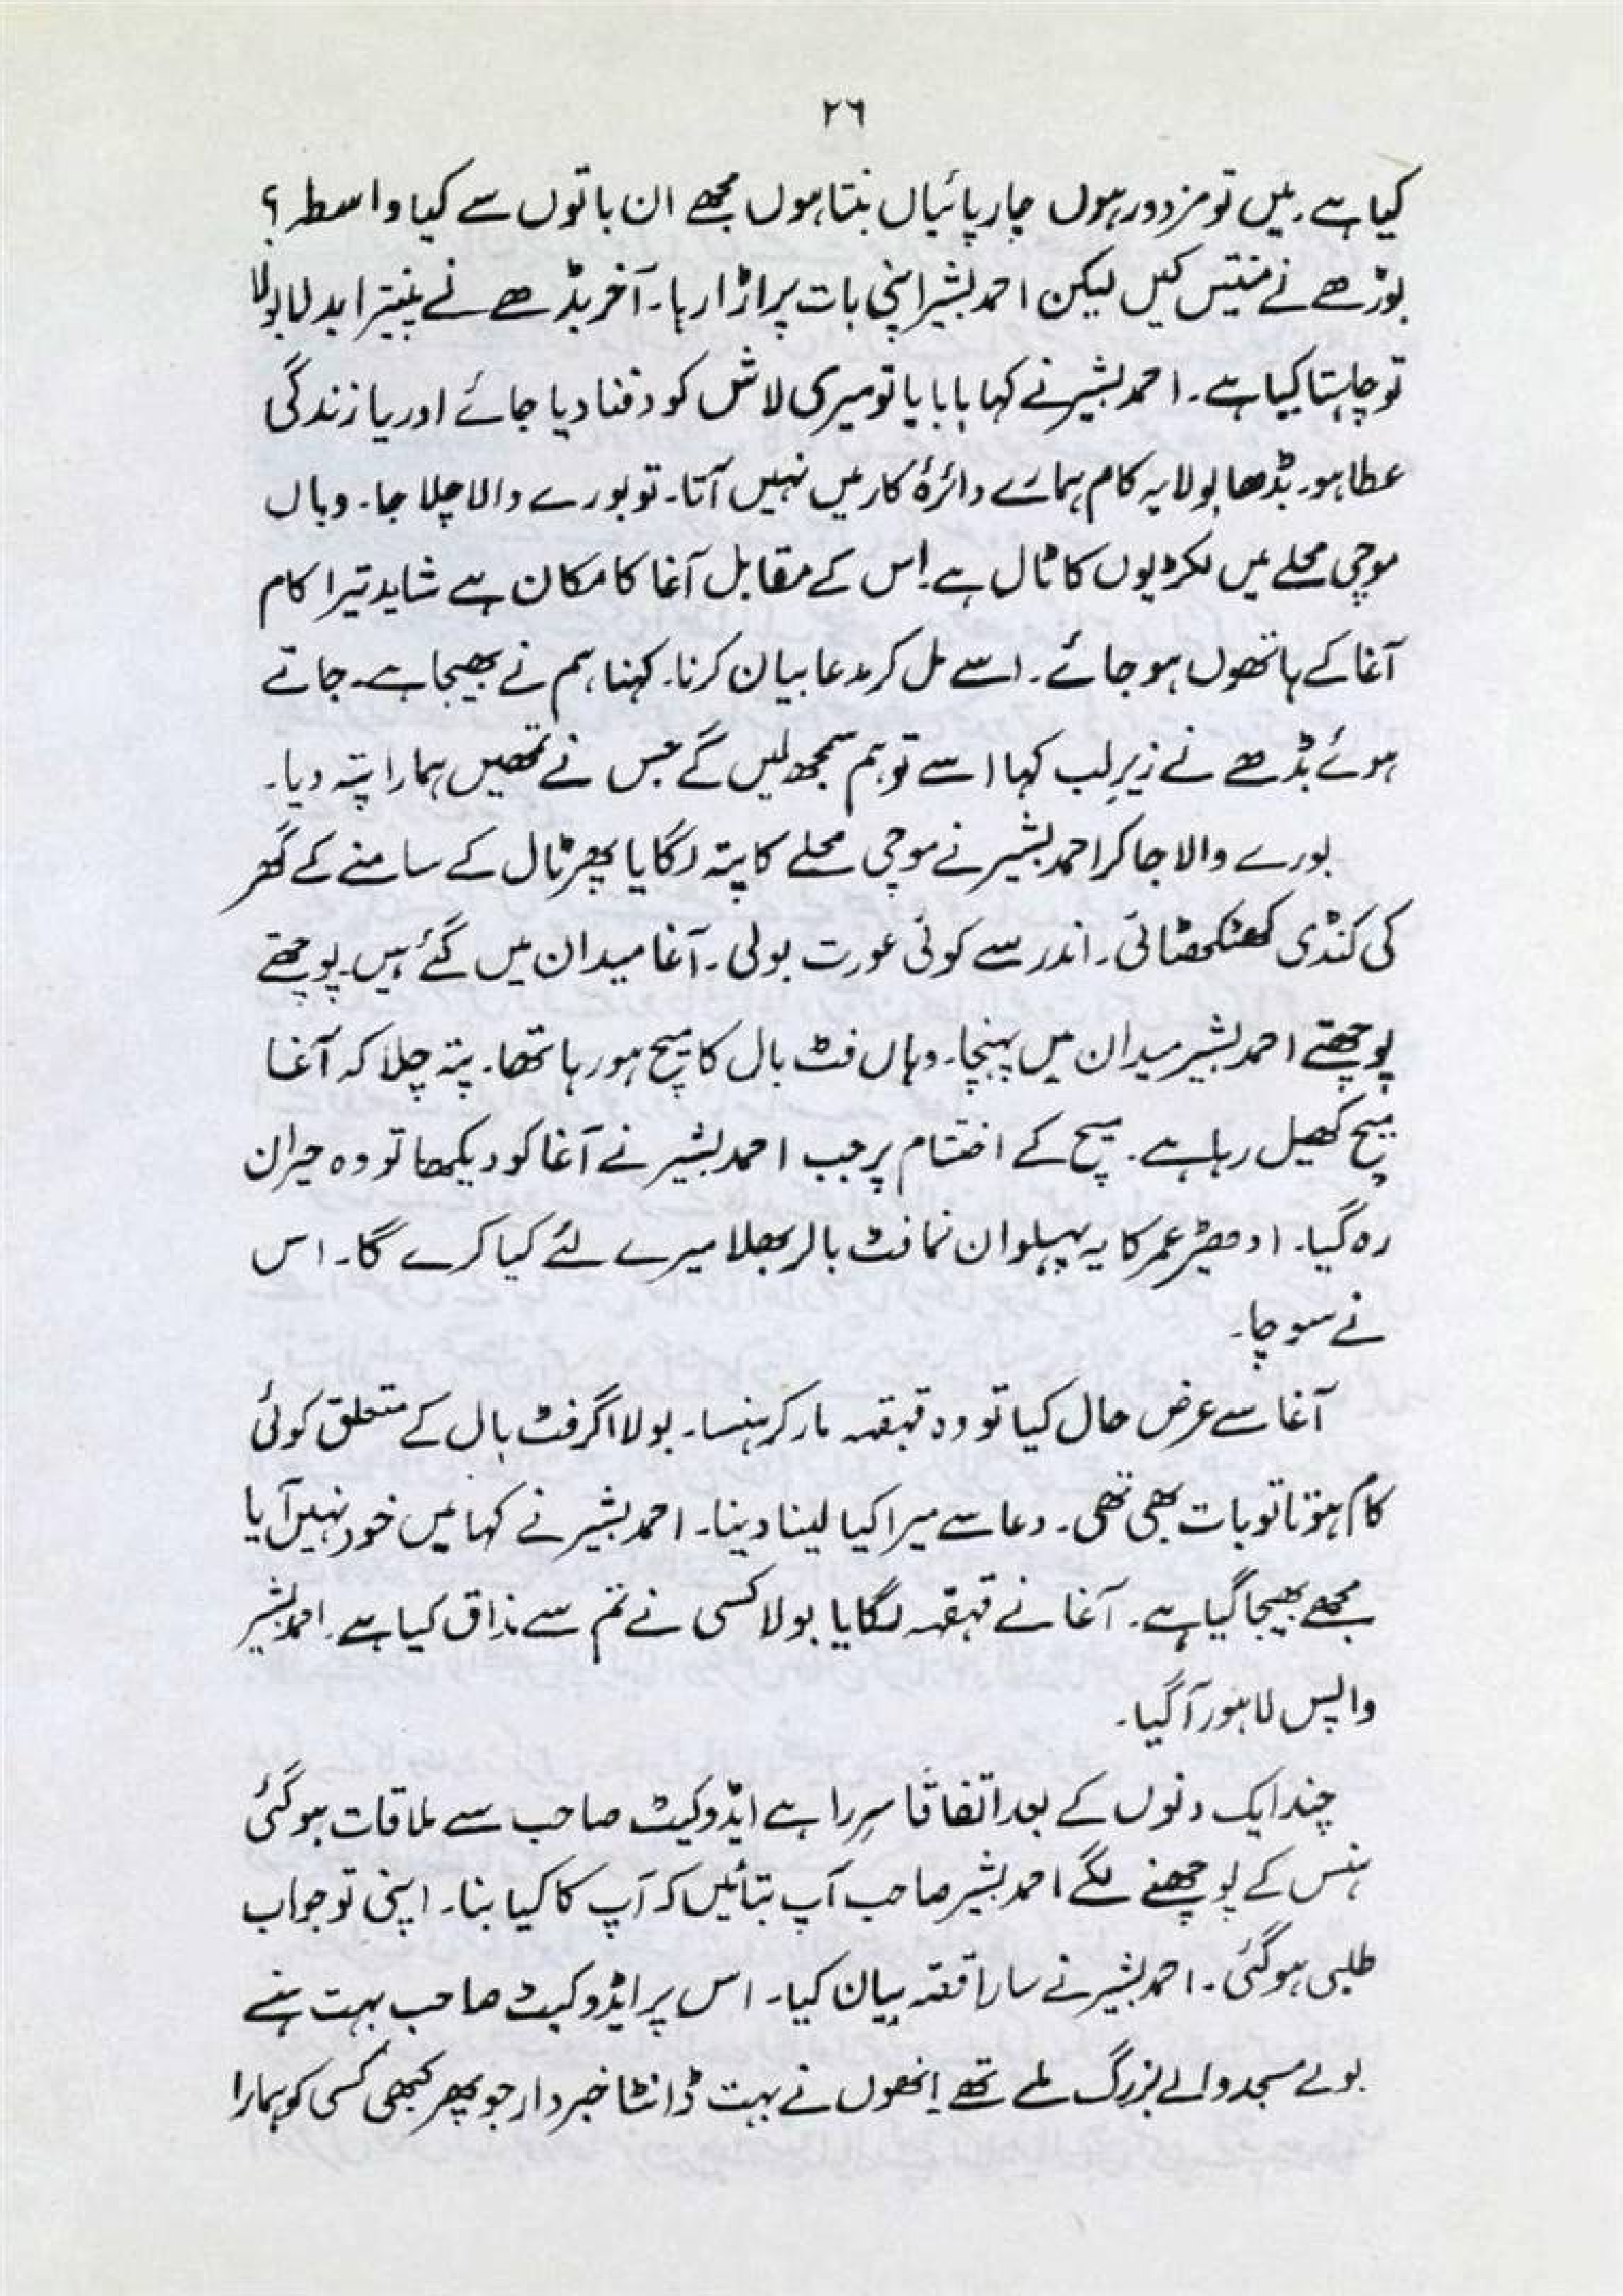 ۲۶
کیا ہے۔ میں تو مزدور ہوں چارپائیاں بنتا ہوں مجھے ان باتوں سے کیا واسطہ؟
بوڑھے نے منتیں کیں لیکن احمد بشیر اپنی بات پر اڑا رہا۔ آخر بڈھے نے پینترا بدلا بولا
تو چاہتا کیا ہے۔ احمد بشیر نے کہا بابا یا تو میری لاش کو دفنا دیا جائے اور یا زندگی
عطا ہو۔ بڈھا بولا یہ کام ہمارے دائرۂ کار میں نہیں آتا۔ تو بورے والا چلا جا۔ وہاں
موچی محلے میں لکڑیوں کا ٹال ہے۔ اس کے مقابل آغا کا مکان ہے شاید تیرا کام
آغا کے ہاتھوں ہو جائے۔ اسے مل کر مدعا بیان کرنا۔ کہنا ہم نے بھیجا ہے۔ جاتے
ہوئے بڈھے نے زیرِ لب کہا اسے تو ہم سمجھ لیں گے جس نے تمھیں ہمارا پتہ دیا۔
بورے والا جا کر احمد بشیر نے موچی محلے کا پتہ لگایا پھر ٹال کے سامنے کے گھر
کی کنڈی کھٹکھٹائی۔ اندر سے کوئی عورت بولی۔ آغا میدان میں گئے ہیں۔ پوچھتے
پوچھتے احمد بشیر میدان میں پہنچا۔ وہاں فٹ بال کا میچ ہو رہا تھا۔ پتہ چلا کہ آغا
میچ کھیل رہا ہے۔ میچ کے اختتام پر جب احمد بشیر نے آغا کو دیکھا تو وہ حیران
رہ گیا۔ ادھیڑ عمر کا یہ پہلوان نما فٹ بالر بھلا میرے لئے کیا کرے گا۔ اس
نے سوچا۔
آغا سے عرض حال کیا تو وہ قہقہہ مار کر ہنسا۔ بولا اگر فٹ بال کے متعلق کوئی
کام ہوتا تو بات بھی تھی۔ دعا سے میرا کیا لینا دینا۔ احمد بشیر نے کہا میں خود نہیں آیا
مجھے بھیجا گیا ہے۔ آغا نے قہقہہ لگایا بولا کسی نے تم سے مذاق کیا ہے۔ احمد بشیر
واپس لاہور آ گیا۔
چند ایک دنوں کے بعد اتفاقاً سرِ راہے ایڈوکیٹ صاحب سے ملاقات ہو گئی
ہنس کے پوچھنے لگے احمد بشیر صاحب آپ بتائیں کہ آپ کا کیا بنا۔ اپنی تو جواب
طلبی ہو گئی۔ احمد بشیر نے سارا قصّہ بیان کیا۔ اس پر ایڈوکیٹ صاحب بہت ہنسے
بولے مسجد والے بزرگ ملے تھے انھوں نے بہت ڈانٹا خبردار جو پھر کبھی کسی کو ہمارا